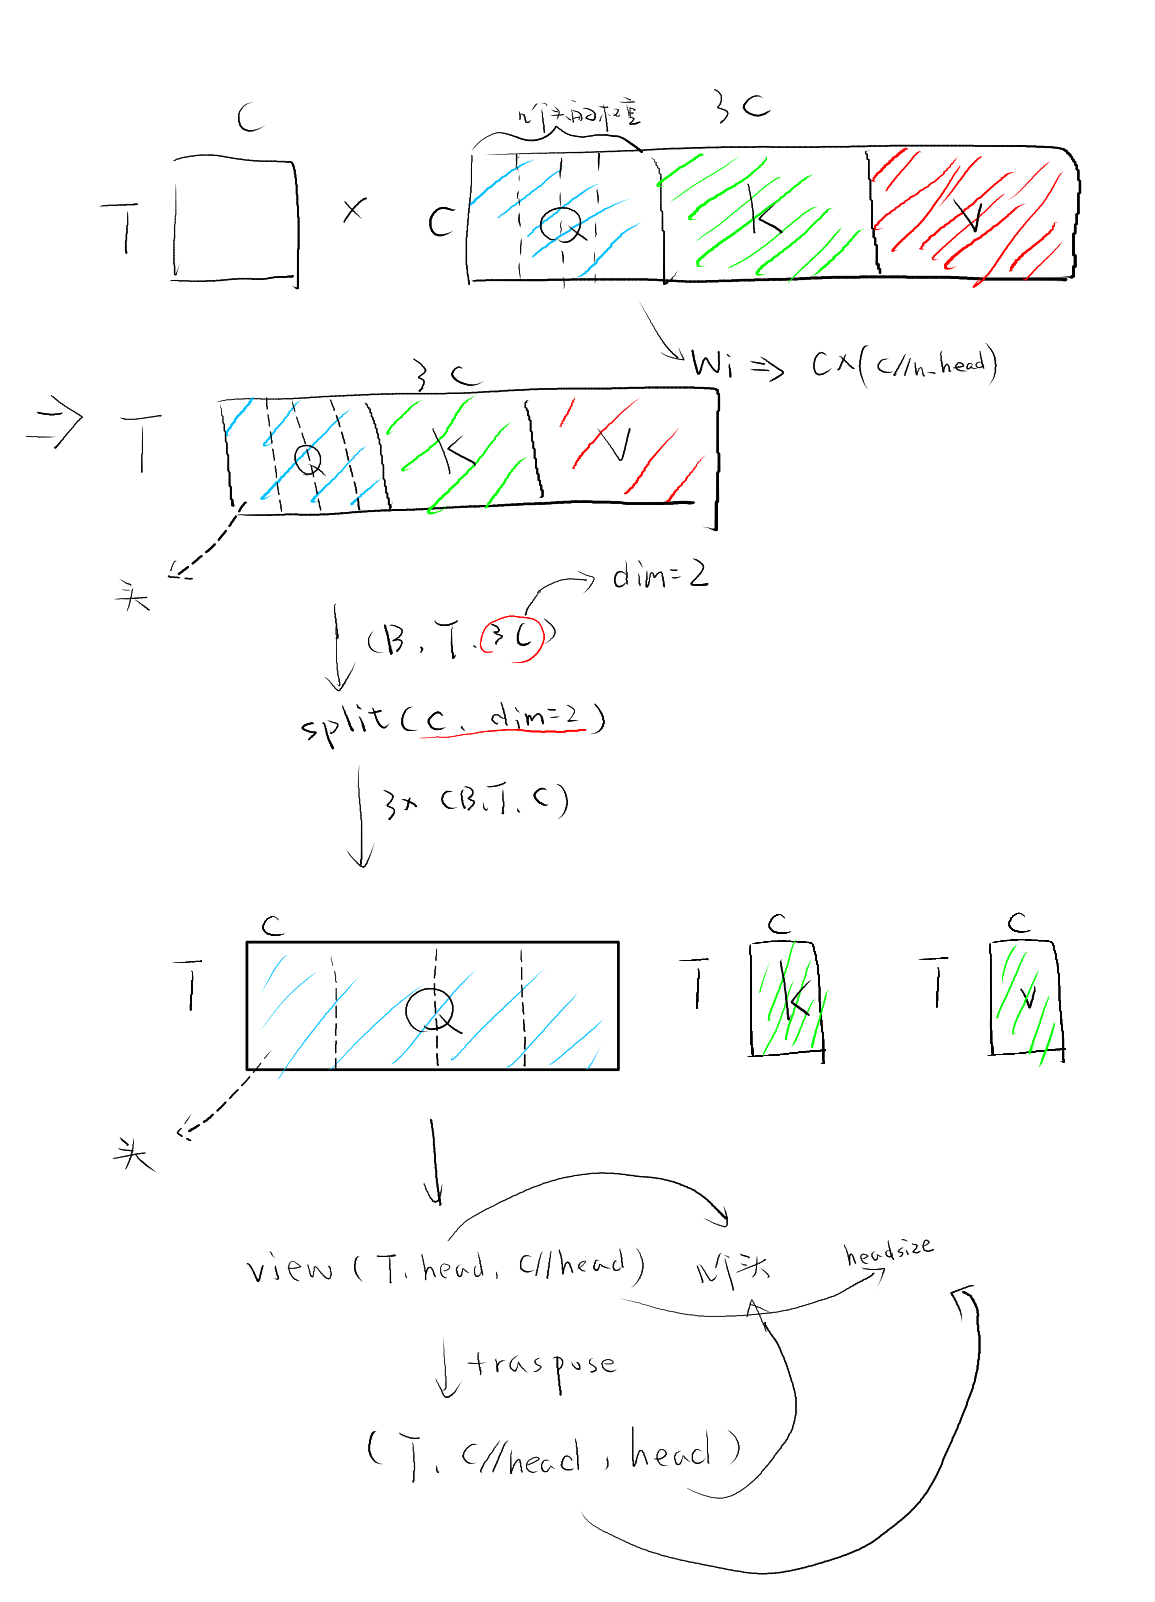 C
n个头的权重
3C
T
×
C
Q
K
V
Wi => C×(C//n_head)
3C
=> T
Q
K
V
头
dim=2
(B, T, 3C)
split(C, dim=2)
3× (B, T, C)
C
C
C
T
Q
T
K
T
V
头
view (T, head, C//head)
n个头
headsize
traspose
(T, C//head, head)